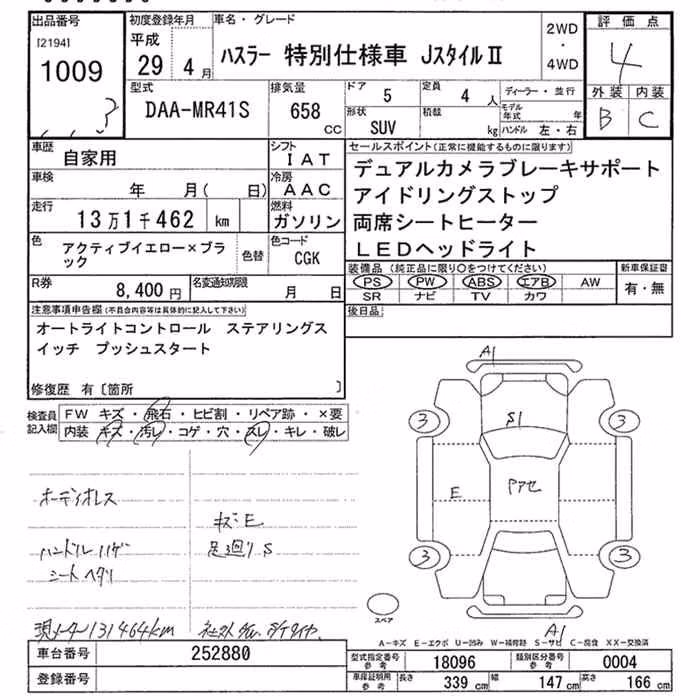 出品番号
[2194]
1009
初度登録年月
平成
29 4月
車名・グレード
ハスラー 特別仕様車 JスタイルⅡ
2WD
・
4WD
評価点
4
外装 内装
B C
型式
DAA-MR41S
排気量
658
CC
ドア
5
定員
4 人
ディーラー・並行
形状
SUV
積載
kg
モデル年式 年
ハンドル 左・右
車歴
自家用
シフト
IAT
車検
年 月( 日)
冷房
AAC
走行
13万1千462 km
燃料
ガソリン
色
アクティブイエロー×ブラック
色替
色コード
CGK
R券
8,400円
名変通知期限
月 日
セールスポイント(正常に機能するものに限ります)
デュアルカメラブレーキサポート
アイドリングストップ
両席シートヒーター
LEDヘッドライト
装備品(純正品に限り○をつけてください)
PS PW ABS エアB AW
SR ナビ TV カワ
新車保証書
有・無
後日品
注意事項申告欄(不具合内容等は具体的に記入して下さい)
オートライトコントロール ステアリングス
イッチ プッシュスタート
修復歴 有〔箇所 〕
検査員
記入欄
FW キズ・飛石・ヒビ割・リペア跡・×要
内装・キズ・汚レ・コゲ・穴・スレ・キレ・破レ
オーディオレス
キズE
ハンドルハゲ
足廻りS
シートヘタリ
現メーター131464km
A1
3 3
S1
E
3 3
スペア
A1
A-キズ E-エクボ U-凹み W-補修跡 S-サビ C-腐食 XX-交換済
車台番号
252880
登録番号
型式指定番号
参考
18096
類別区分番号
参考
0004
車庫証明用
参考
長さ
339 cm
幅
147 cm
高さ
166 cm